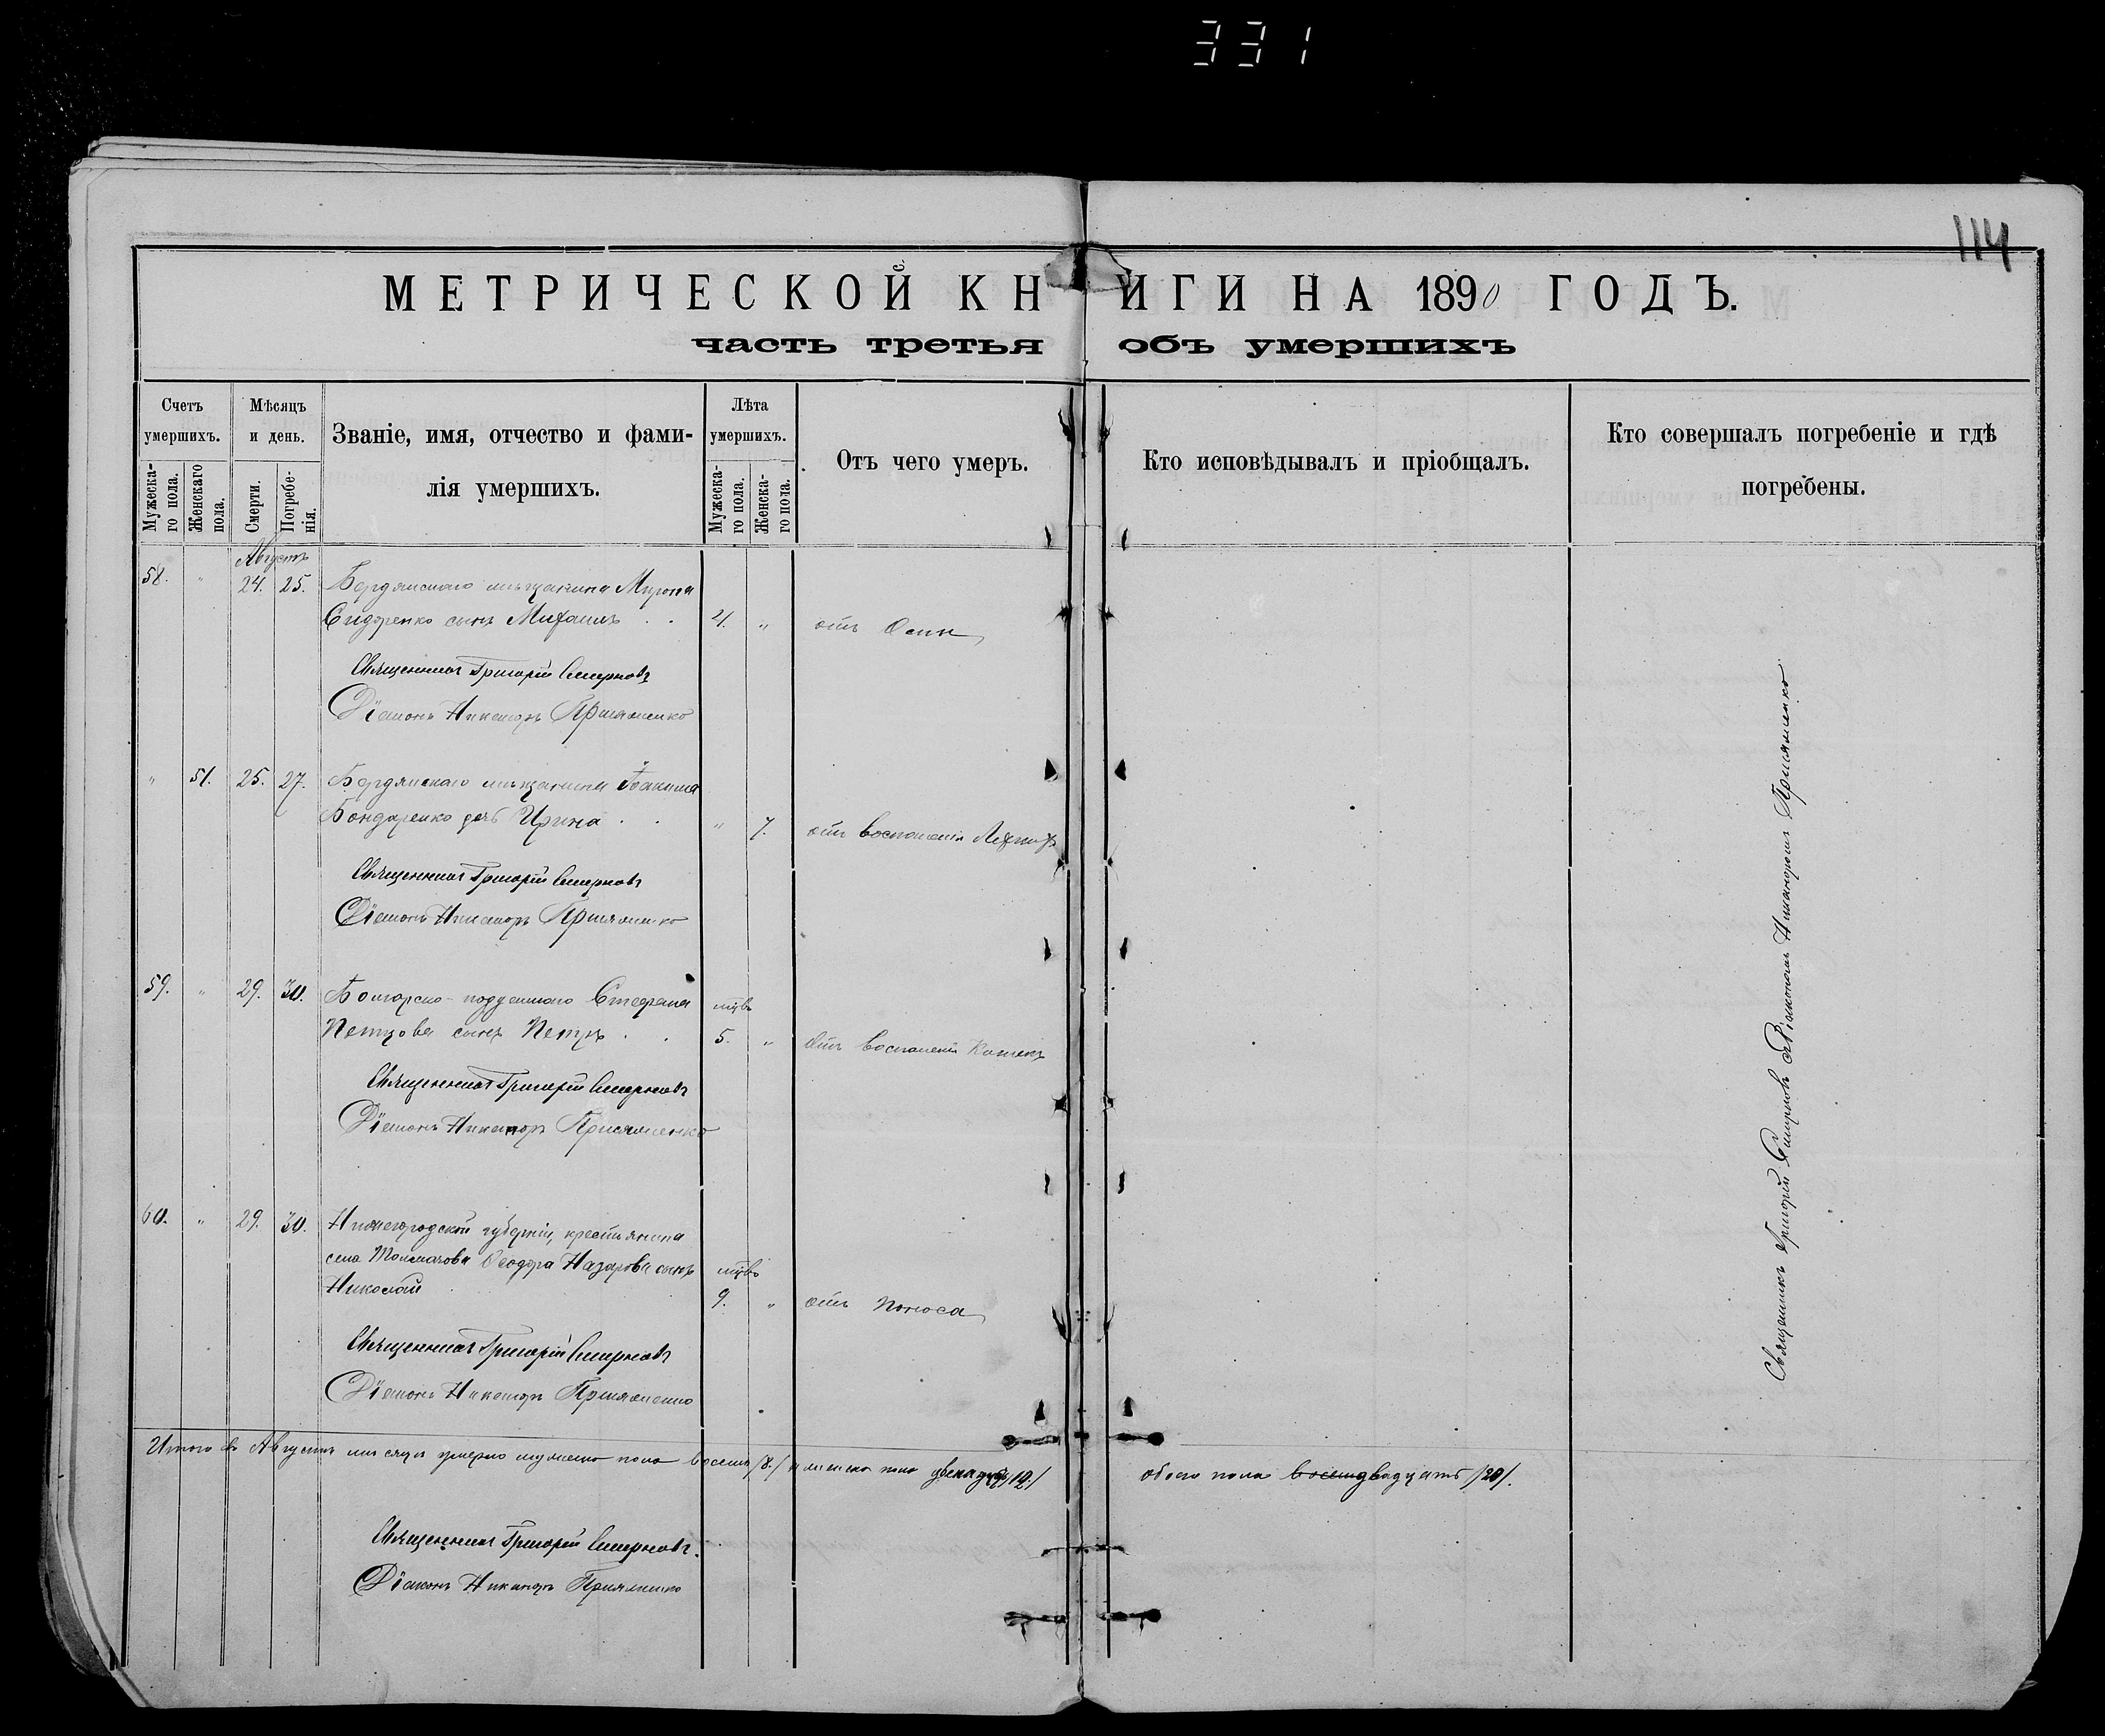 331
114
МЕТРИЧЕСКОЙ КНИГИ НА 1890 ГОДЪ.
часть третья объ умершихъ
Счетъ умершихъ.
Мужеска-го пола.
Женскаго пола.
Мѣсяцъ и день.
Смерти.
Погребе-нія.
Званіе, имя, отчество и фами-
лія умершихъ.
Лѣта умершихъ.
Мужеска-го пола.
Женска-го пола.
Отъ чего умеръ.
Кто исповѣдывалъ и пріобщалъ.
Кто совершалъ погребеніе и гдѣ
погребены.
Августъ
58. " 24. 25. Бердянскаго мѣщанина Мирона
Сидоренко сынъ Михаилъ . . 4. " отъ Оспы
Священникъ Григорій Смирновъ
Діаконъ Никаноръ
" 51. 25. 27. Бердянскаго мѣщанина Іоакима
Бондаренко дочь Ирина . . " 7. отъ воспаленія
Священникъ Григорій Смирновъ
Діаконъ Никаноръ
59. " 29. 30. Болгарско-подданнаго Стефана мцвъ
Петрова сынъ Петръ . . 5. " отъ воспаленія Кишекъ
Священникъ Григорій Смирновъ
Діаконъ Никаноръ
60. " 29. 30. Нижегородской губерніи, крестьянина
села Ѳеодора Назарова сынъ мцвъ
Николай 9. " отъ поноса
Священникъ Григорій Смирновъ
Діаконъ Никаноръ
Итого въ Августѣ мѣсяцѣ умерло мужеска пола восемь /8./ женска пола двенадцать /12./ обоего пола двадцать /20/.
Священникъ Григорій Смирновъ.
Діаконъ Никаноръ
Священникъ Григорій Смирновъ съ Діакономъ Никаноромъ